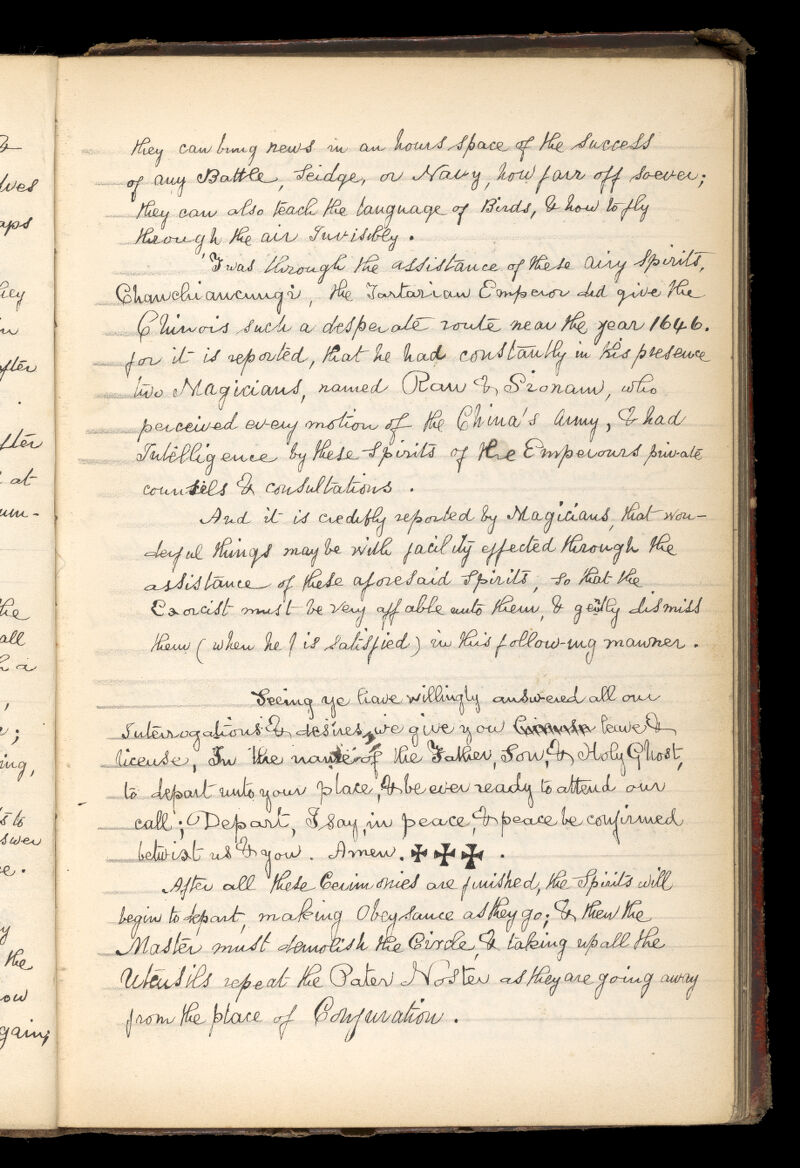 they can bring news in an hours space of the success
of any Battle, Seidge, or Navy, how farr off soever;
they can also teach the language of Birds, & how to fly
through the air Invisibly.
'Twas through the assistance of these airy spirits,
Chanchiancungi, the Tartarian Emperor did give the
Chinois such a desperate route near the year 1646.
for it is reported, that he had constantly in his presence
two Magicians, named Ran & Sionam, who
perceived every motion of the China's army, & had
Intelligence by these Spirits of the Emperours private
counsels & consultations.
And it is credibly reported by Magicians, that won-
derful things may be with facility effected through the
assistance of these aforesaid Spirits, so that the
Exorcist must be very affable unto them, & gently dismiss
them (when he is satisfied) in this follow-ing manner.
Seeing ye have willingly answered all our
Interrogations & desires, we give you leave &
license, In the name of the Father, Son, & Holy Ghost,
to depart unto your place, & be ever ready to attend our
call; Depart, I say, in peace, & peace be confirmed
betwixt us & you. Amen. ✠ ✠ ✠.
After all these Cerimonies are finished, the Spirits will
begin to depart, making Obeysance as they go; & then the
Master must demolish the Circle, & taking up all the
Utensils repeat the Pater Noster as they are going away
from the place of Conjuration.